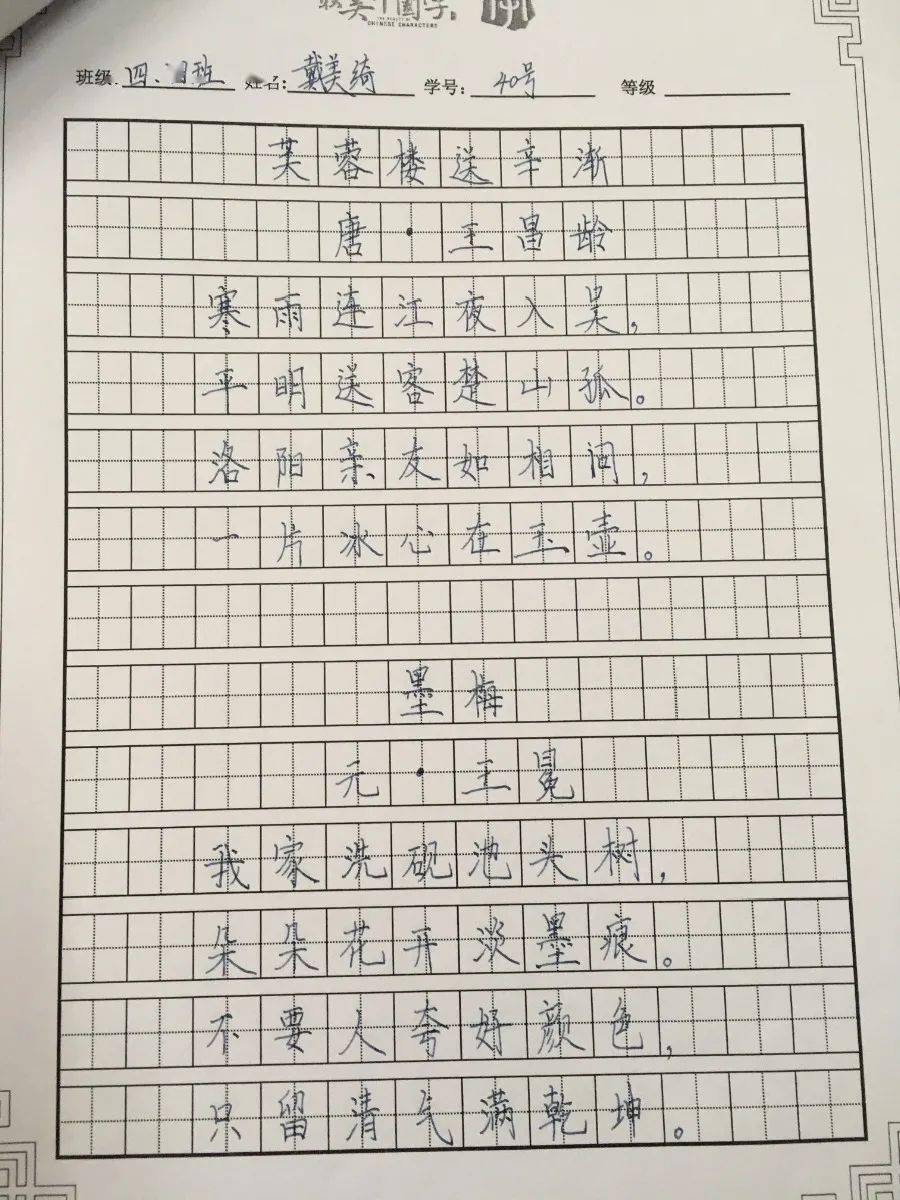 最美中国字
THE BEAUTY OF
CHINESE CHARACTERS
班级:四、班 姓名:戴美绮 学号:40号 等级
芙蓉楼送辛渐
唐·王昌龄
寒雨连江夜入吴,
平明送客楚山孤。
洛阳亲友如相问,
一片冰心在玉壶。
墨梅
元·王冕
我家洗砚池头树,
朵朵花开淡墨痕。
不要人夸好颜色,
只留清气满乾坤。